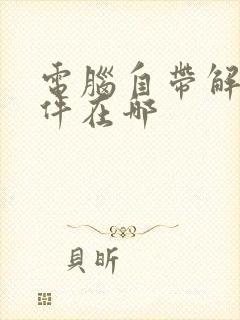 電腦自帶解
件在哪
貝昕